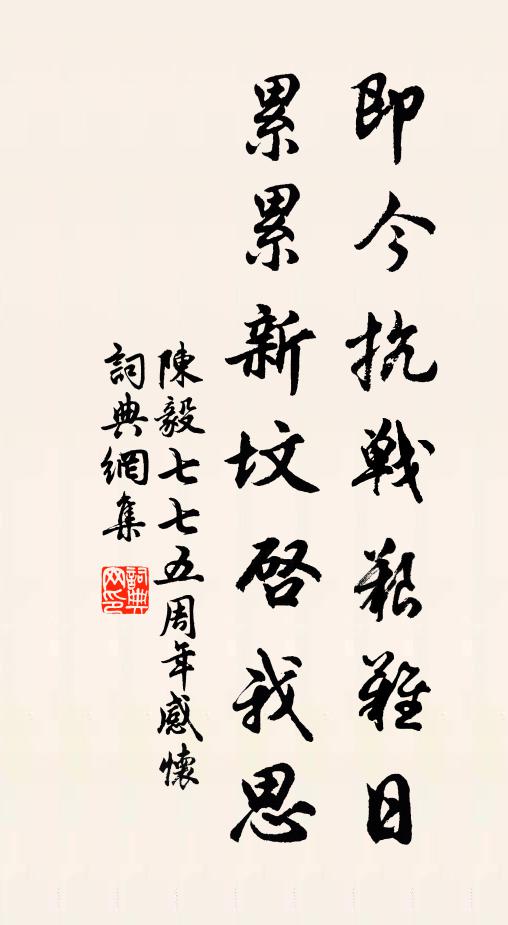 即今抗戰艱難日
累累新墳啓我思
陳毅七七五周年感懷
詞典網集
詞典
网印